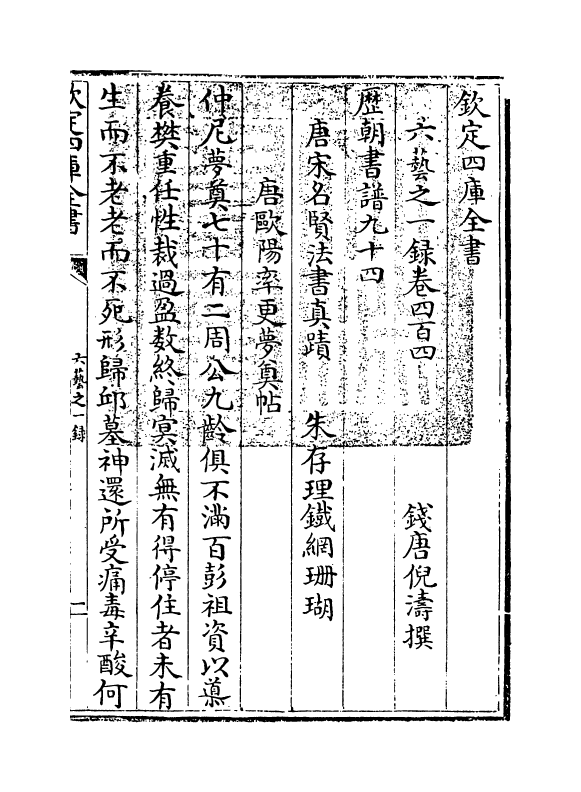 欽定四庫全書
六藝之一録卷四百四
錢唐倪濤撰
歷朝書譜九十四
唐宋名賢法書真蹟 朱存理鐵網珊瑚
唐歐陽率更夢奠帖
仲尼夢奠七十有二周公九齡俱不滿百彭祖資以導
養樊重任性裁過盈數終歸冥滅無有得停住者未有
生而不老老而不死形歸邱墓神還所受痛毒辛酸何
欽定四庫全書
六藝之一録
一